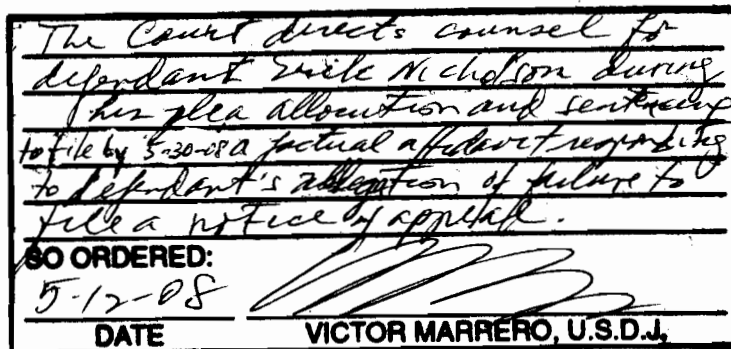 The Court directs counsel for
defendant Erik Nicholson during
his plea allocution and sentencing
to file by 5-30-08 a factual affidavit responding
to defendant's allegation of failure to
file a notice of appeal.
SO ORDERED:
5-12-08
DATE VICTOR MARRERO, U.S.D.J.